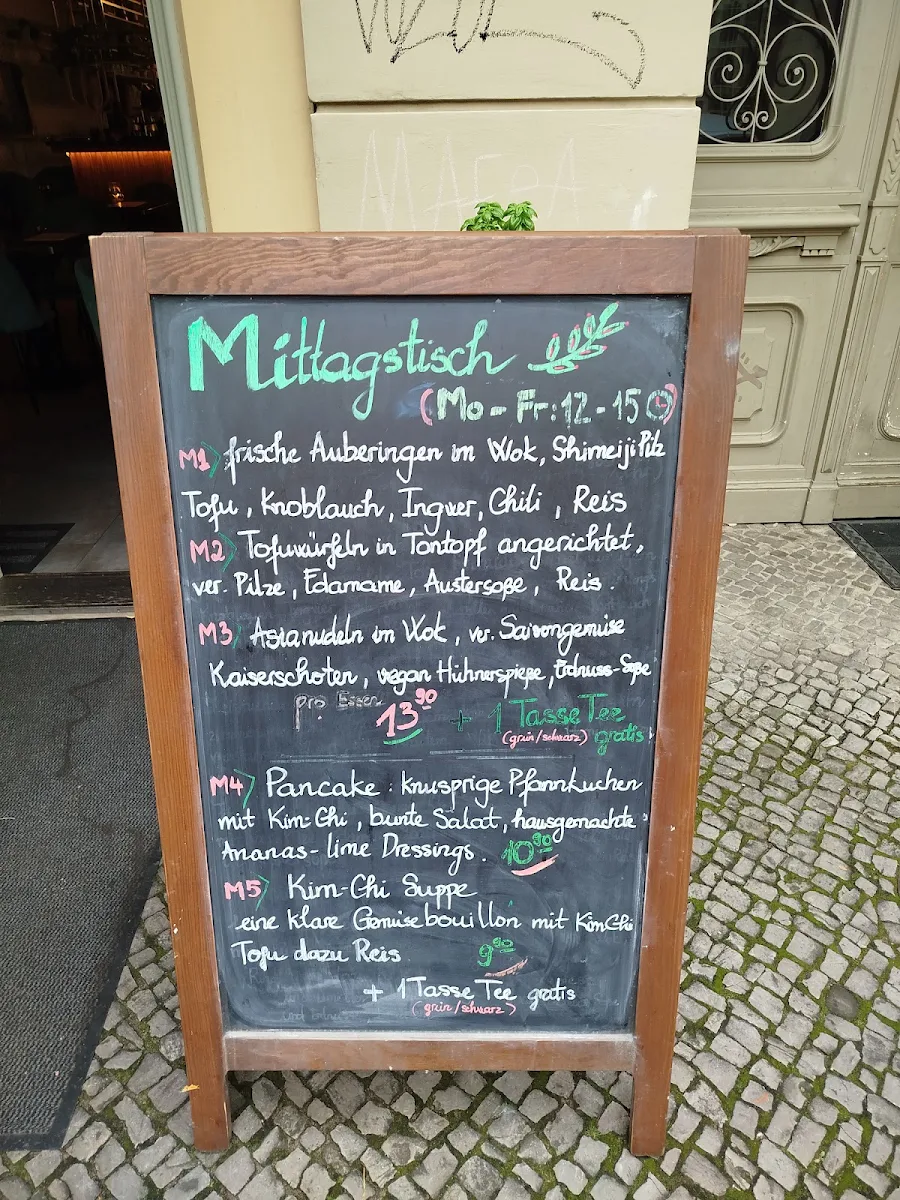 Mittagstisch
(Mo - Fr: 12 - 15)
M1 frische Auberingen im Wok, Shimeiji Pilz
Tofu, Knoblauch, Ingwer, Chili, Reis
M2 Tofuwürfeln in Tontopf angerichtet,
ver. Pilze, Edamame, Austersoße, Reis.
M3 Asianudeln im Wok, ver. Saisongemüse
Kaiserschoten, vegan Hühnerspieße, Erdnuss-Soße
pro Essen 1390 + 1 Tasse Tee
(grün/schwarz) gratis
M4 Pancake: knusprige Pfannkuchen
mit Kim-Chi, bunte Salat, hausgemachte
Ananas-lime Dressings. 1090
M5 Kim-Chi Suppe
eine klare Gemüsebouillon mit KimChi
Tofu dazu Reis 990
+ 1 Tasse Tee gratis
(grün/schwarz)